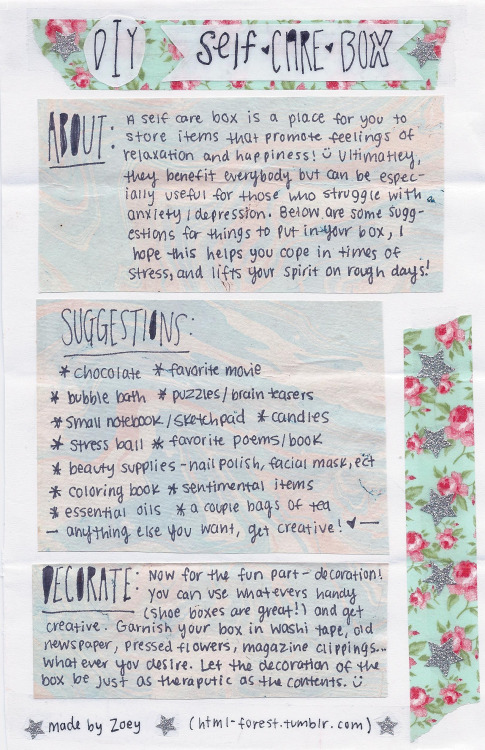 DIY Self ♥ CARE ♥ BOX
ABOUT: A self care box is a place for you to
store items that promote feelings of
relaxation and happiness! ü Ultimatley,
they benefit everybody but can be espec-
ially useful for those who struggle with
anxiety/depression. Below are some sugg-
estions for things to put in your box, I
hope this helps you cope in times of
stress, and lifts your spirit on rough days!
SUGGESTIONS:
* chocolate * favorite movie
* bubble bath * puzzles/brain teasers
* small notebook/sketchpad * candles
* stress ball * favorite poems/book
* beauty supplies - nail polish, facial mask, ect
* coloring book * sentimental items
* essential oils * a couple bags of tea
— anything else you want, get creative! ♥ —
DECORATE: Now for the fun part - decoration!
you can use whatevers handy
(shoe boxes are great!) and get
creative. Garnish your box in washi tape, old
newspaper, pressed flowers, magazine clippings...
what ever you desire. Let the decoration of the
box be just as theraputic as the contents. ü
made by Zoey (html-forest.tumblr.com)